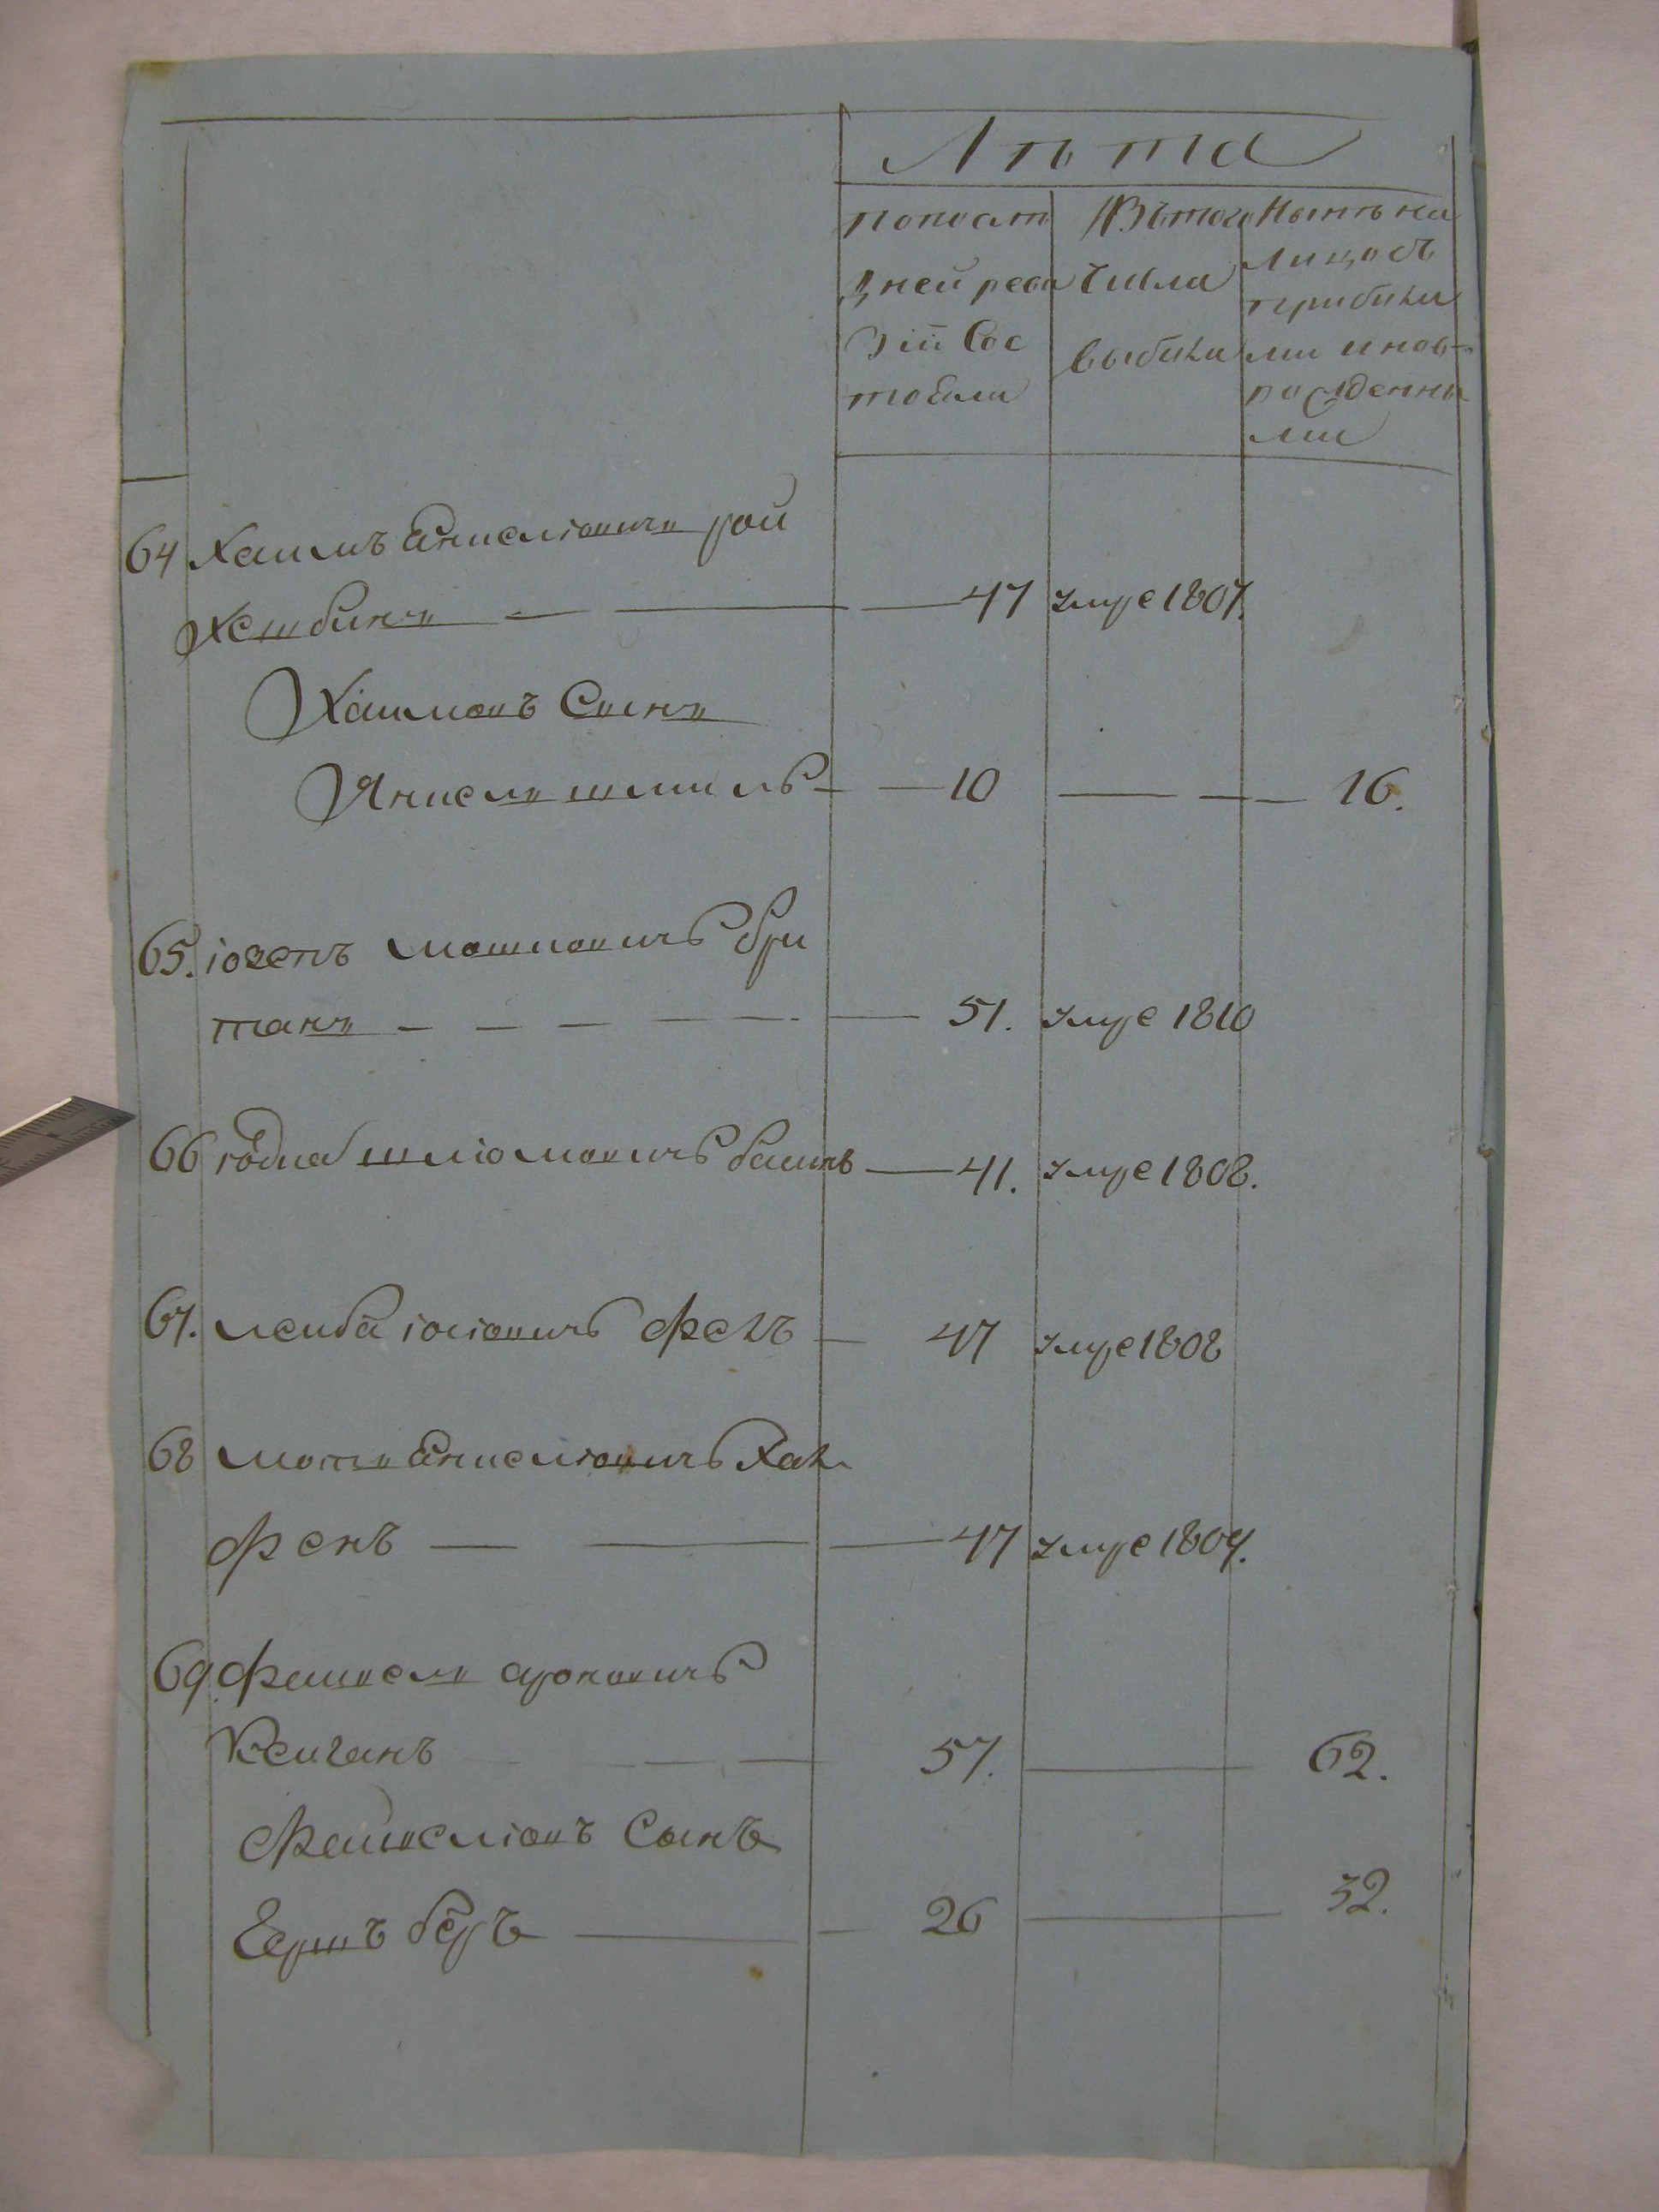 Лѣта
попосле
дней реви
зiи Сос
тояли
Изътого
числа
выбили
Нынѣ на
лицо съ
прибили
ми и нов
рожденны
ми
64 Хаимъ Янкелiовичъ рой
47 умре 1807.
Хаимовъ Сынъ
Янкель шмиль 10 16.
65. iосепъ мошковичъ бри
танъ 51. умре 1810
66 шлiомовичъ 41. умре 1808.
67. лейба iосiовичъ фекъ 47 умре 1808
68 мотя Янкелiовичъ Хак
фенъ 47 умре 1809.
69. Файвель ароновичъ
57. 62.
Файвелiовъ Сынъ
Гершъ беръ 26 32.